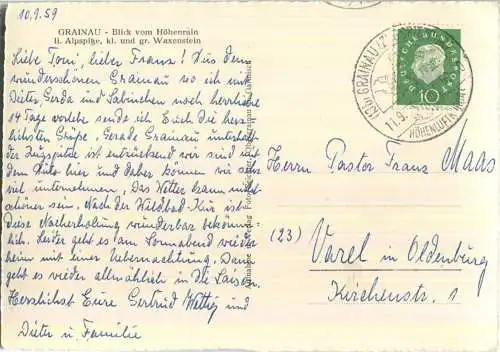 10.9.59
GRAINAU - Blick vom Höhenrain
li. Alpspitze, kl. und gr. Waxenstein
Liebe Toni, lieber Franz! Aus dem
wunderschönen Grainau wo ich mit
Dieter, Gerda und Sabinchen noch herrliche
14 Tage verlebe sende ich Euch die herz-
lichsten Grüße. Gerade Grainau unterhalb
der Zugspitze ist entzückend wir sind mit
dem Auto hier und daher können wir auch
viel unternehmen. Das Wetter kann nicht
schöner sein. Nach der Wildbad-Kur ist
diese Nacherholung wunderbar bekömm-
lich. Leider geht es am Sonnabend wieder
heim mit einer Uebernachtung. Dann
geht es wieder allmählich in die Saison.
Herzlichst Eure Gertrud und
Dieter u. Familie
DEUTSCHE BUNDESPOST
10
GRAINAU
11.9.
Herrn Pastor Franz Maas
(23) Varel in Oldenburg
Kirchenstr. 1